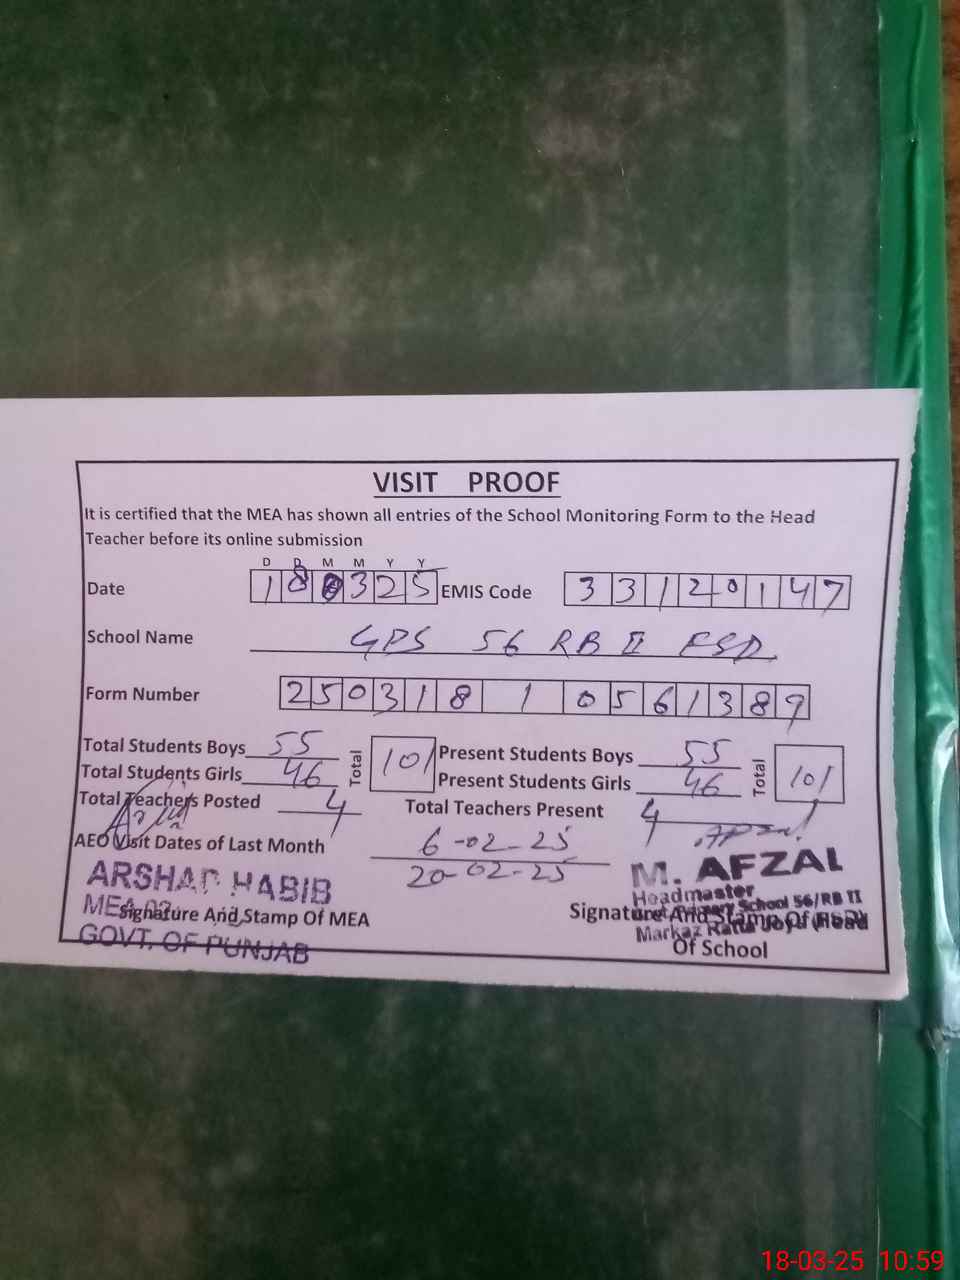 VISIT PROOF
It is certified that the MEA has shown all entries of the School Monitoring Form to the Head
Teacher before its online submission
D D M M Y Y
Date 180325 EMIS Code 33120147
School Name GPS 56 RB II FSD
Form Number 250318 1 0561389
Total Students Boys 55 Total 101 Present Students Boys 55 Total 101
Total Students Girls 46 Present Students Girls 46
Total Teachers Posted 4 Total Teachers Present 4
AEO Visit Dates of Last Month 6-02-25
20-02-25
ARSHAD HABIB
MEA
Signature And Stamp Of MEA
GOVT. OF PUNJAB
M. AFZAL
Headmaster
School 56/RB II
Signature And Stamp Of Head
Markaz
Of School
18-03-25 10:59